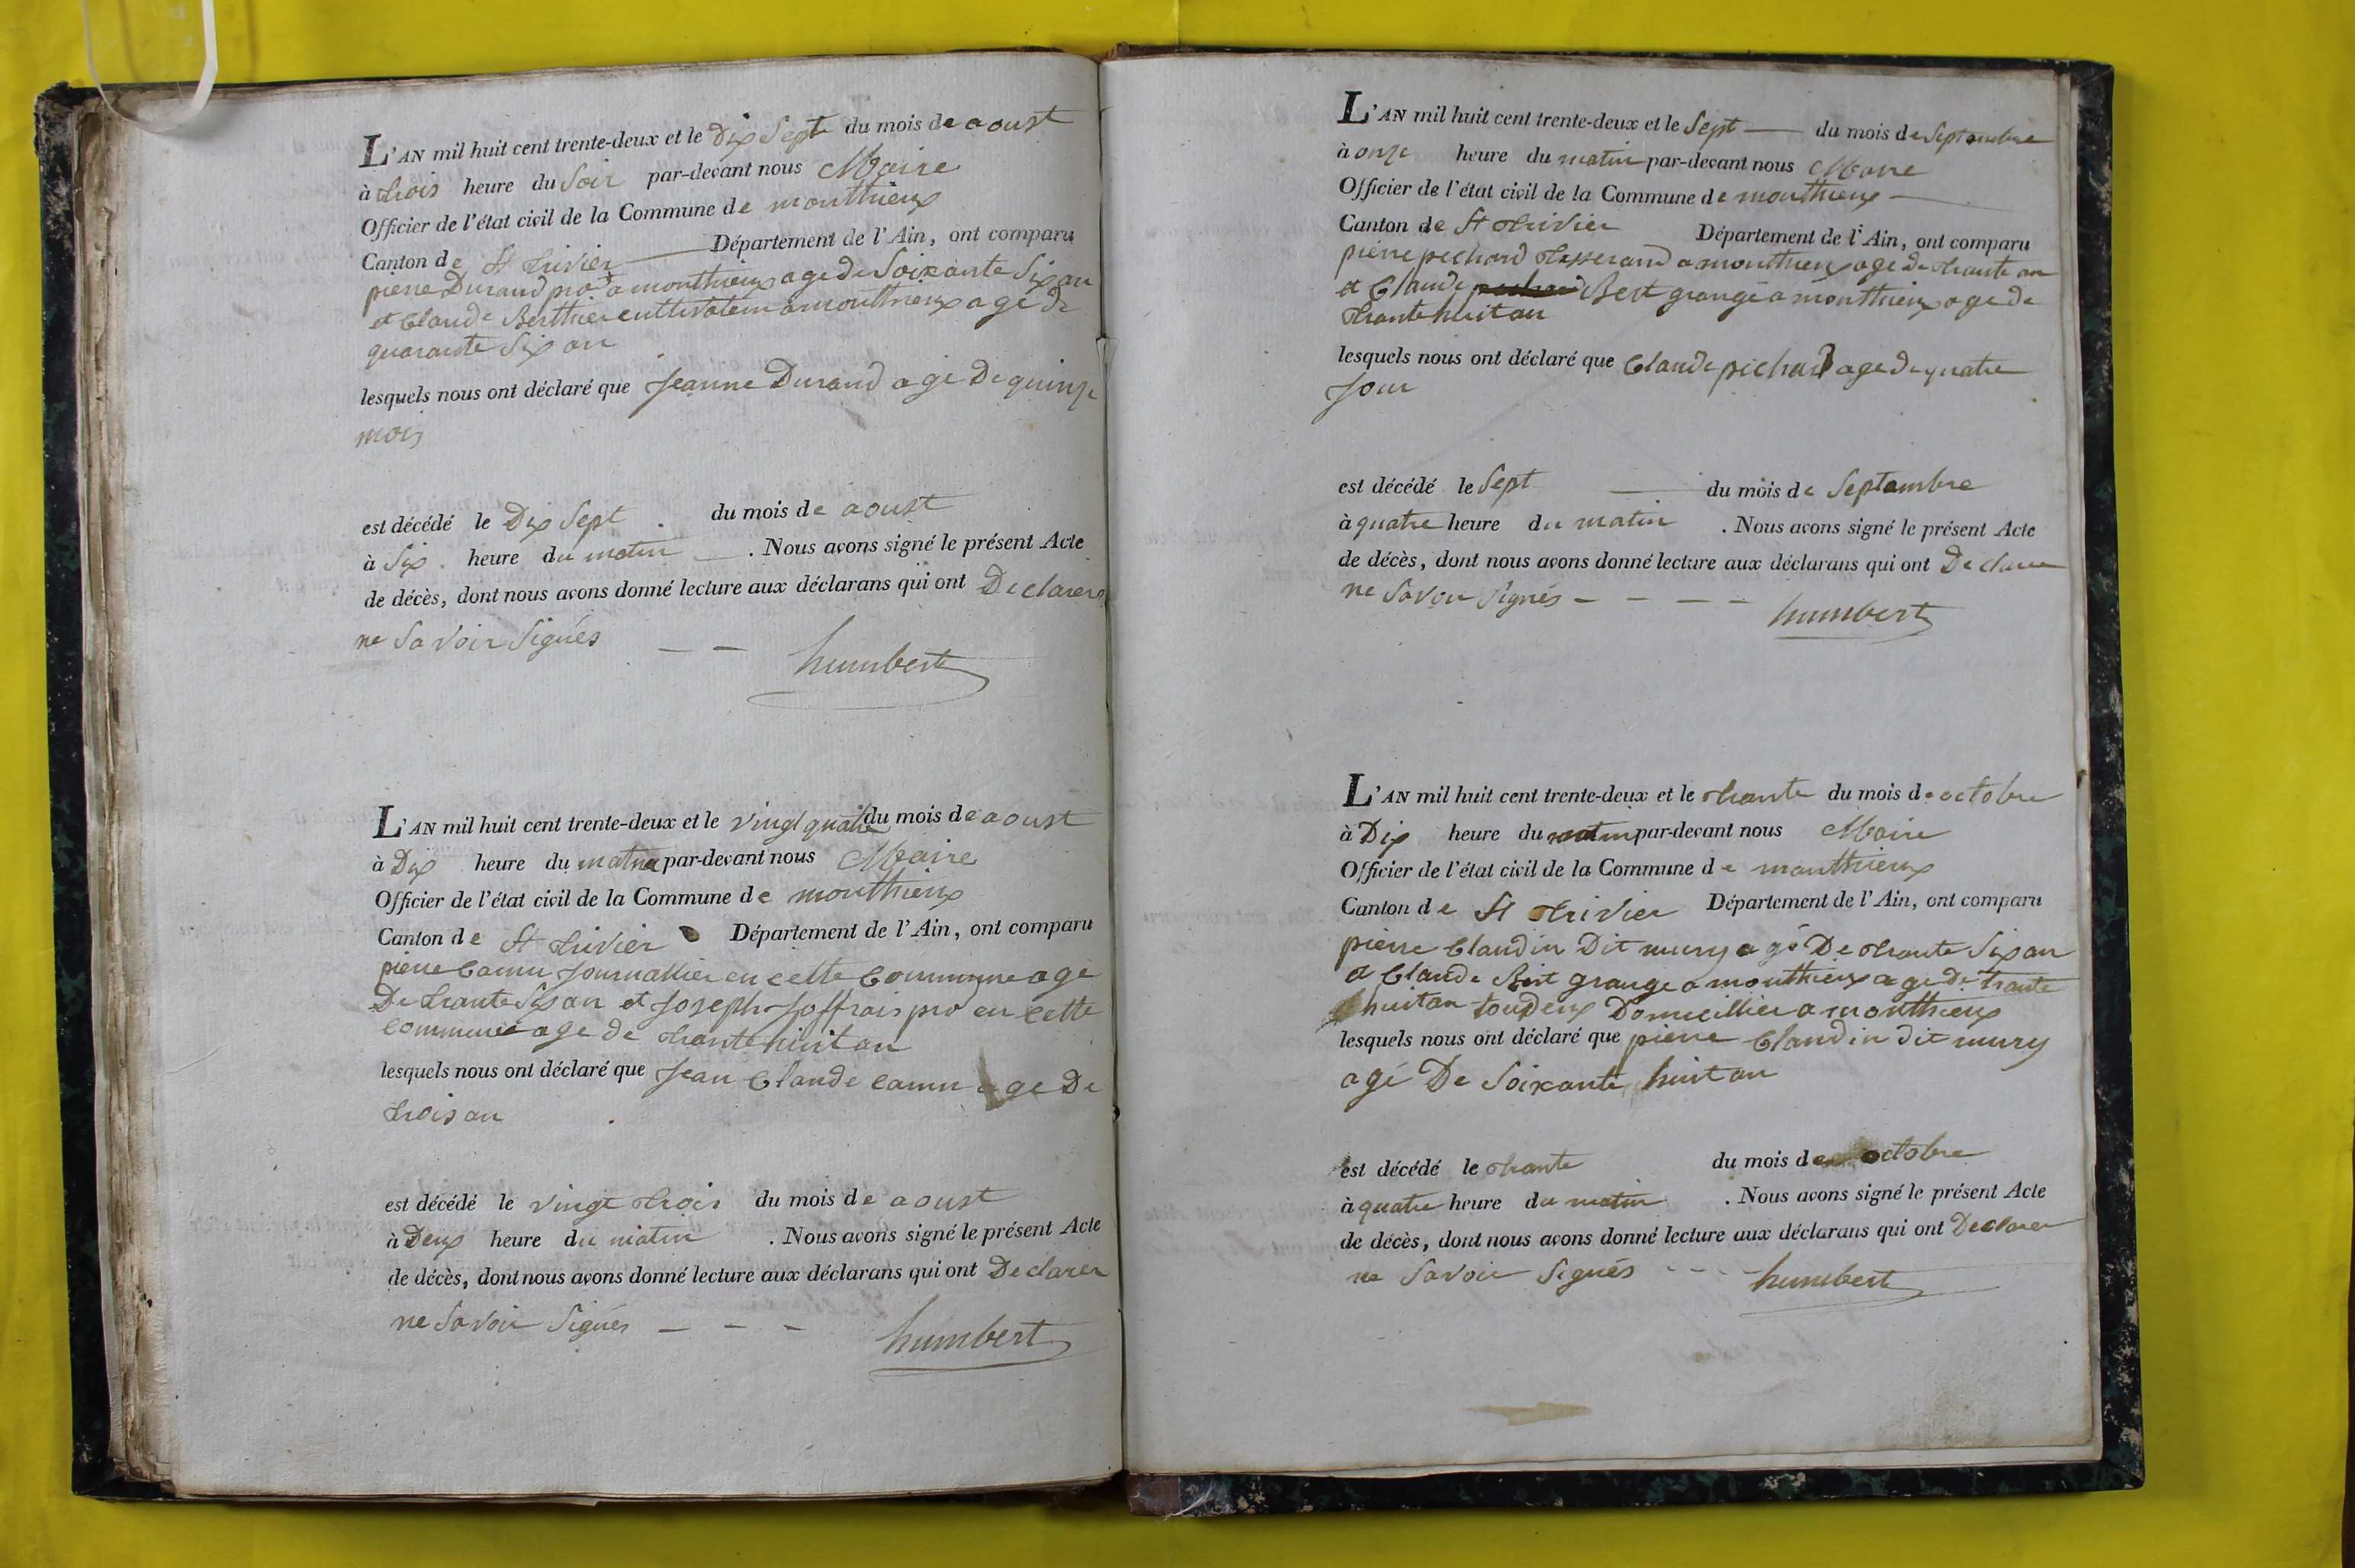 L'AN mil huit cent trente-deux et le Dix Sept du mois de aoust
à trois heure du Soir par-devant nous Maire
Officier de l'état civil de la Commune de monthieux
Canton de St trivier Département de l'Ain, ont comparu
pierre Durand pro a monthieux age de Soixante Six an
et Claude Berthier cultivateur a monthieux age de
quarante Six an
lesquels nous ont déclaré que Jeanne Durand age De quinze
mois
est décédé le Dix Sept du mois de aoust
à Six heure du matin . Nous avons signé le présent Acte
de décès, dont nous avons donné lecture aux déclarans qui ont Declarer
ne Savoir Signés
humbert
L'AN mil huit cent trente-deux et le vingt quatre du mois de aoust
à Dix heure du matin par-devant nous Maire
Officier de l'état civil de la Commune de monthieux
Canton de St trivier Département de l'Ain, ont comparu
pierre Camu Journallier en cette Commune age
De trante Six an et Joseph Joffrais pro en cette
commune age de trante huit an
lesquels nous ont déclaré que Jean Claude camu age De
trois an
est décédé le vingt trois du mois de aoust
à Deux heure du matin . Nous avons signé le présent Acte
de décès, dont nous avons donné lecture aux déclarans qui ont Declarer
ne Savoir Signés
humbert
L'AN mil huit cent trente-deux et le Sept du mois de Septembre
à onze heure du matin par-devant nous Maire
Officier de l'état civil de la Commune de monthieux
Canton de St trivier Département de l'Ain, ont comparu
pierre pechard tisserand a monthieux age de trante an
et Claude Bert grangé a monthieux age de
trante huit an
lesquels nous ont déclaré que Claude pichard age de quatre
Jour
est décédé le Sept du mois de Septembre
à quatre heure du matin . Nous avons signé le présent Acte
de décès, dont nous avons donné lecture aux déclarans qui ont Declarer
ne Savoir Signés
humbert
L'AN mil huit cent trente-deux et le trante du mois de octobre
à Dix heure du matin par-devant nous Maire
Officier de l'état civil de la Commune de monthieux
Canton de St trivier Département de l'Ain, ont comparu
pierre Claudin Dit mury agé De trante Six an
et Claude Bert grange a monthieux age de trante
huit an tou deux Domicillier a monthieux
lesquels nous ont déclaré que pierre Claudin dit mury
agé De Soixante huit an
est décédé le trante du mois de octobre
à quatre heure du matin . Nous avons signé le présent Acte
de décès, dont nous avons donné lecture aux déclarans qui ont Declarer
ne Savoir Signés
humbert